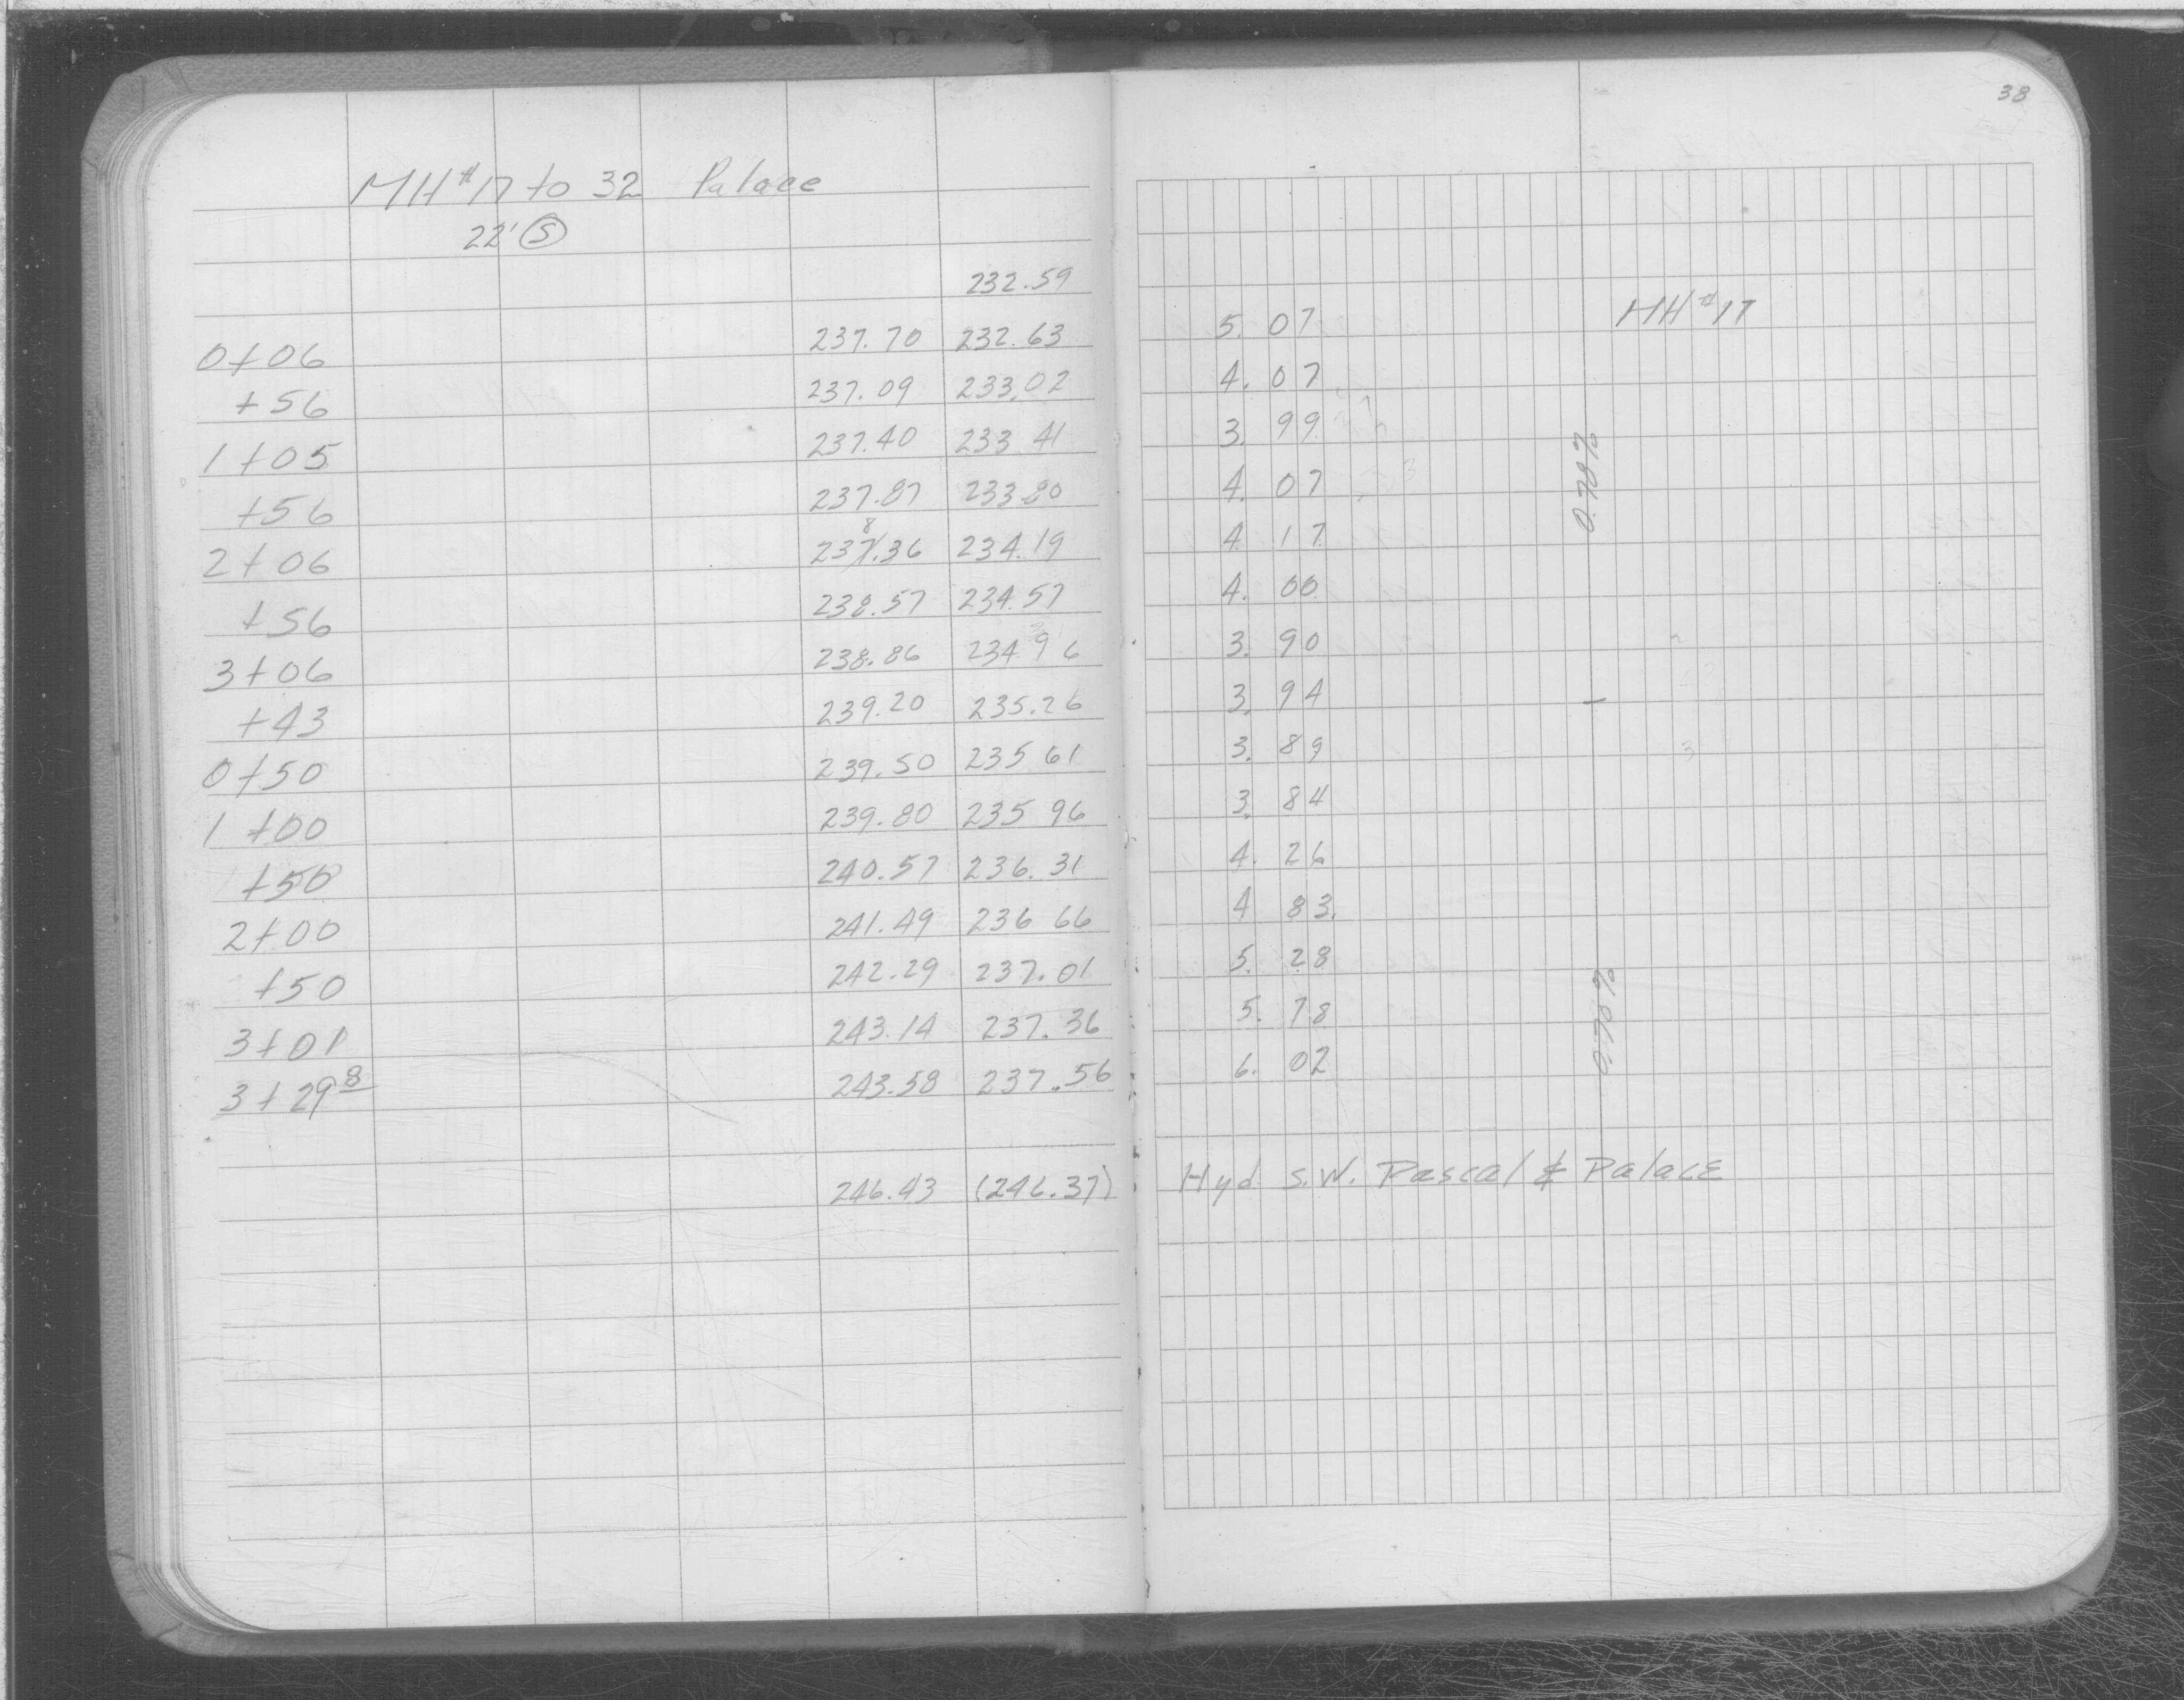 38
MH #17 to 32 Palace
22' Ⓢ
232.59
0+06 237.70 232.63 5.07 MH #17
+56 237.09 233.02 4.07
1+05 237.40 233 41 3.99
+56 237.87 233.80 4.07 0.78%
2+06 237.36 234.19 4 17
8
+56 238.57 234.57 4.00
3+06 238.86 234 96 3.90
+43 239.20 235.26 3.94
0+50 239.50 235 61 3.89
1+00 239.80 235 96 3.84
+50 240.57 236.31 4.26
2+00 241.49 236 66 4 83
+50 242.29 237.01 5.28
3+01 243.14 237.36 5.78 0.70%
3+29 8 243.58 237.56 6.02
246.43 (246.37) Hyd S.W. Pascal & Palace